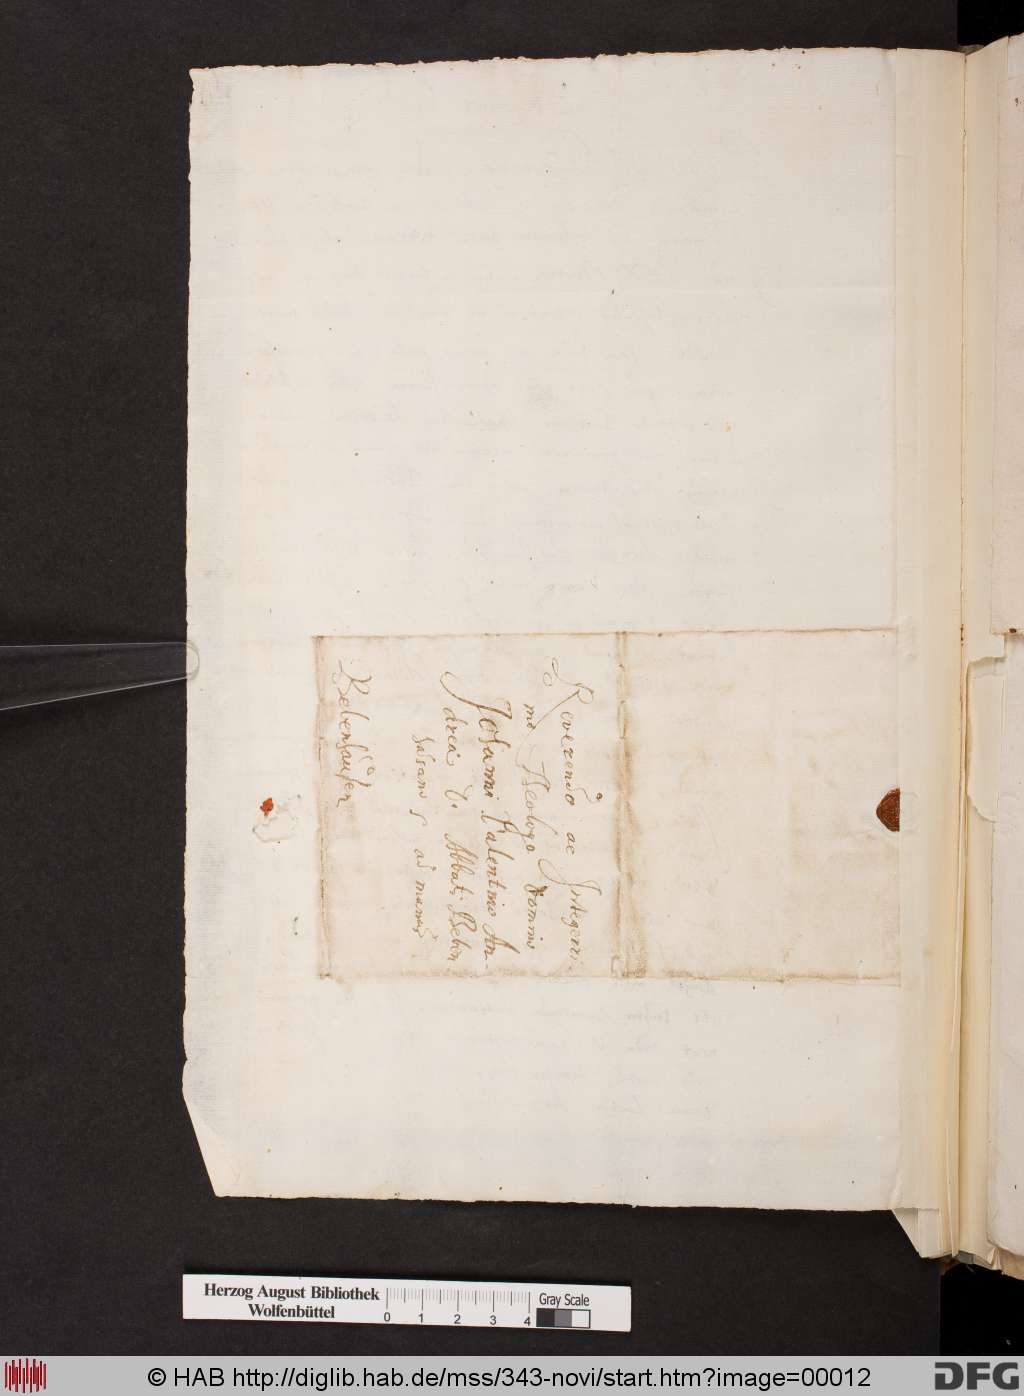 Reverendo ac Integerri-
mo Theologo Domino
Johanni Valentino An-
dreæ, Abbati Beben
ad manus
Bebenhausen
Herzog August Bibliothek
Wolfenbüttel
0 1 2 3 4
Gray Scale
© HAB http://diglib.hab.de/mss/343-novi/start.htm?image=00012
DFG